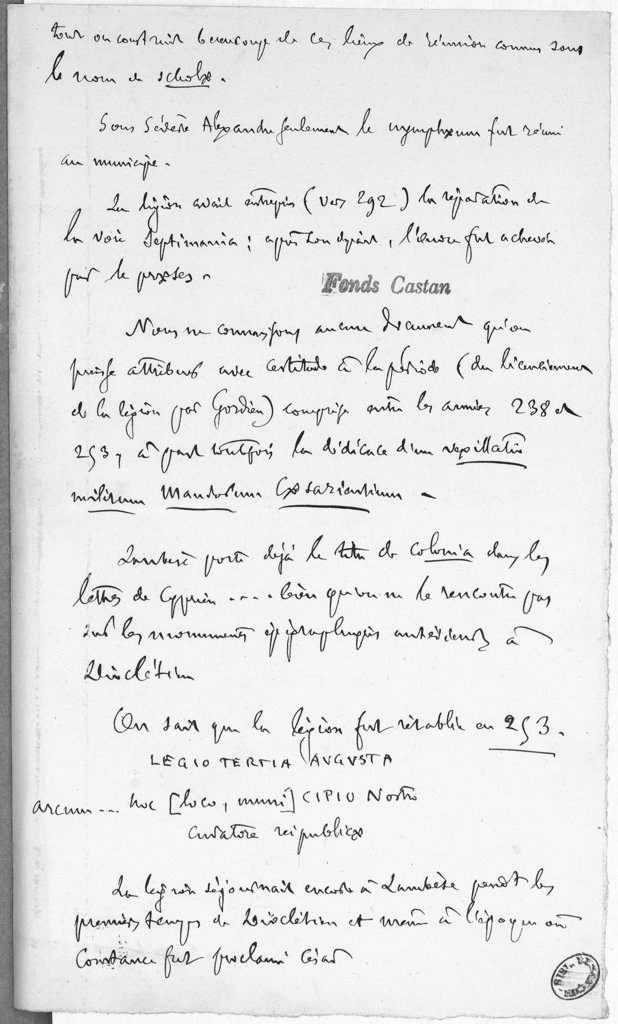 tout on construit beaucoup de ces lieux de réunion connus sous
le nom de scholæ.
Sous Sévère Alexandre seulement le nymphæum fut réuni
au municipe.
La légion avait entrepris (vers 292) la réparation de
la voie Septimiana ; après son départ, l'œuvre fut achevée
par le præses.
Fonds Castan
Nous ne connaissons aucun document qu'on
puisse attribuer avec certitude à la période (du licenciement
de la légion par Gordien) comprise entre les années 238 et
253, à part toutefois la dédicace d'un vexillatio
militum Maurorum Cæsariensium -
Lambèse porte déjà le titre de colonia dans les
lettres de Cyprien .... bien qu'on ne le rencontre pas
sur les monuments épigraphiques antérieurs à
Dioclétien
On sait que la légion fut rétablie en 253.
LEGIO TERTIA AUGVSTA
arcum... hoc [loco, muni]CIPIO Nostro
curatore reipublicæ
La légion séjournait encore à Lambèse pendt les
premiers temps de Dioclétien et même à l'époque où
Constance fut proclamé César